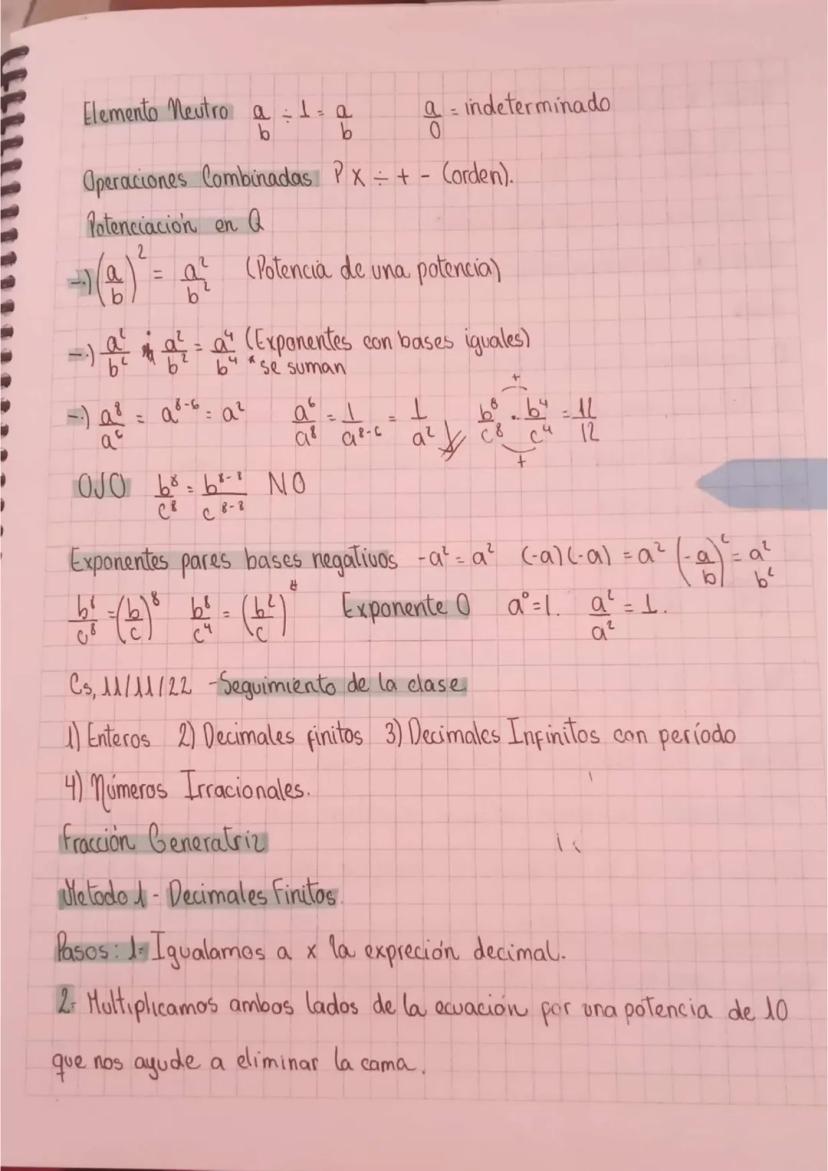 Elemento Neutro a/b ÷ 1 = a/b a/0 = indeterminado
Operaciones Combinadas P x ÷ + - (orden).
Potenciación en Q
-) (a/b)² = a²/b² (Potencia de una potencia)
-) a²/b² · a²/b² = a⁴/b⁴ (Exponentes con bases iguales)
*se suman
-) a⁸/a⁶ = a⁸⁻⁶ = a² a⁶/a⁸ = 1/a⁸⁻⁶ = 1/a² b⁸/c⁸ · b⁴/c⁴ = 11/12
+
+
OJO b⁸/c⁸ = b⁸⁻⁸/c⁸⁻⁸ NO
Exponentes pares bases negativos -a² = a² (-a)(-a) = a² (-a/b)² = a²/b²
b⁸/c⁸ = (b/c)⁸ b⁸/c⁴ = (b²/c)⁴ Exponente 0 a⁰=1. a²/a² = 1.
Cs, 11/11/22 -Seguimiento de la clase
1) Enteros 2) Decimales finitos 3) Decimales Infinitos con período
4) Números Irracionales.
Fracción Generatriz
Metodo 1 - Decimales Finitos
Pasos: 1- Igualamos a x la expreción decimal.
2- Multiplicamos ambos lados de la ecuación por una potencia de 10
que nos ayude a eliminar la cama.